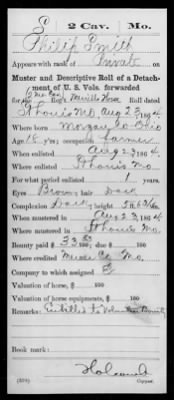 S 2 Cav. Mo.
Philip Smith
Appears with rank of Private
Muster and Descriptive Roll of a Detach-
ment of U. S. Vols. forwarded
for the 2 Mo Cav Merrills Horse Roll dated
St Louis Mo Aug 23, 1864
Where born Morgan Co Ohio
Age 18 y'rs; occupation farmer
When enlisted Aug 23, 1864
Where enlisted St Louis Mo
For what period enlisted 1 years.
Eyes Brown; hair Dark
Complexion Dark; height 5 ft. in.
When mustered in Aug 23, 1864
Where mustered in St Louis Mo.
Bounty paid $ 33 100; due $ 100
Where credited Co Mo.
Company to which assigned E
Valuation of horse, $ 100
Valuation of horse equipments, $ 100
Remarks: Entitled to Bounty
Book mark:
Holcomb
(339) Copyist.